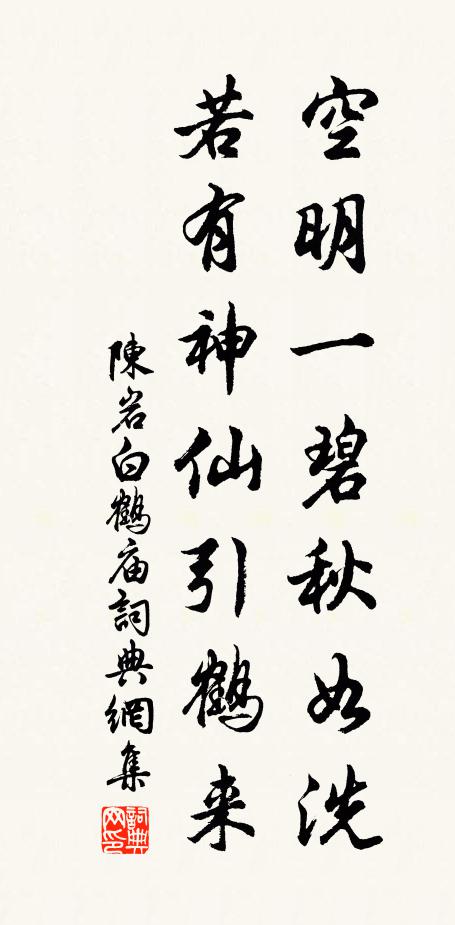 空明一碧秋如洗
若有神仙引鶴来
陳岩白鶴庙詞典網集
詞典網印